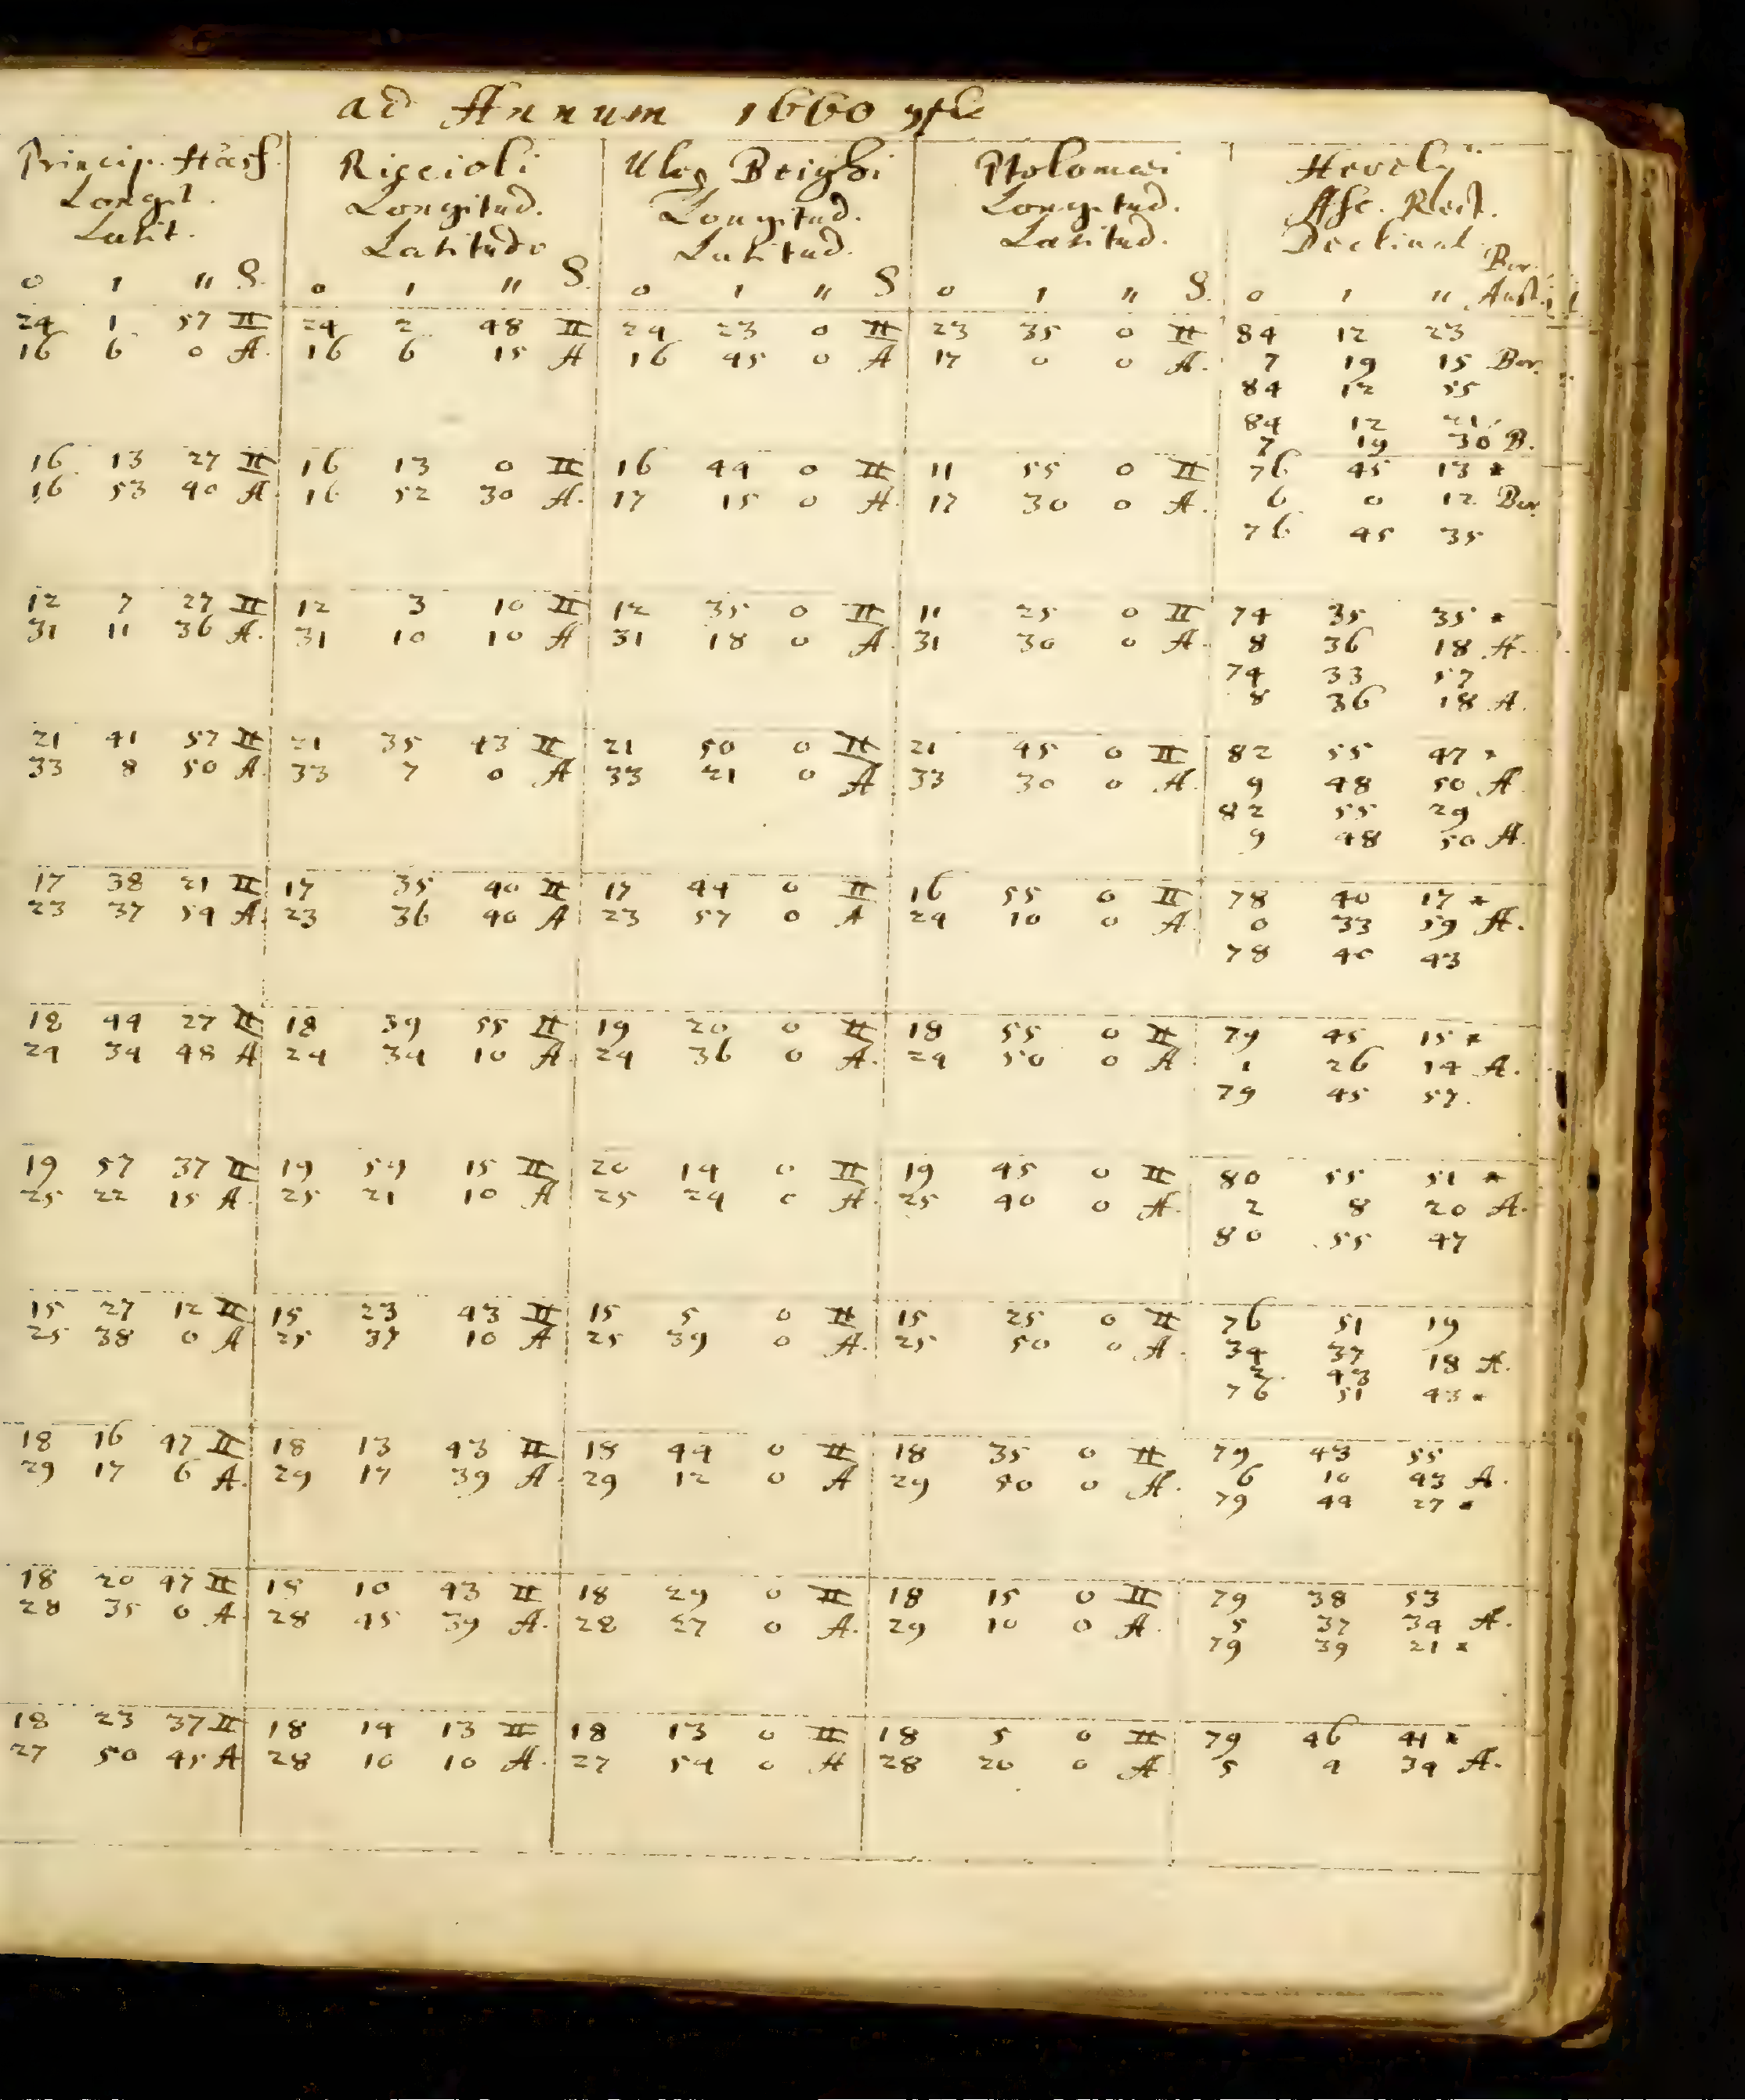 ad Annum 1660
Princip. Hass. Riccioli Uleg Beighi Ptolomaei Hevelij
Longit. Longitud. Longitud. Longitud. Asc. Rect.
Latit. Latitudo Latitud. Latitud. Declinat. Bor.
0 ı ıı S. 0 ı ıı S. 0 ı ıı S 0 ı ıı S. 0 ı ıı Aust.
24 1 57 ♊ 24 2 48 ♊ 24 23 0 ♊ 23 35 0 ♊ 84 12 23
16 6 0 A. 16 6 15 A 16 45 0 A 17 0 0 A. 7 19 15 Bor.
84 12 55
84 12 21
7 19 30 B.
16 13 27 ♊ 16 13 0 ♊ 16 44 0 ♊ 11 55 0 ♊ 76 45 13 *
16 53 40 A 16 52 30 A. 17 15 0 A. 17 30 0 A. 6 0 12 Bor.
76 45 35
12 7 27 ♊ 12 3 10 ♊ 12 35 0 ♊ 11 25 0 ♊ 74 35 35 *
31 11 36 A. 31 10 10 A 31 18 0 A. 31 30 0 A. 8 36 18 A.
74 33 57
8 36 18 A.
21 41 57 ♊ 21 35 43 ♊ 21 50 0 ♊ 21 45 0 ♊ 82 55 47 *
33 8 50 A. 33 7 0 A 33 21 0 A 33 30 0 A. 9 48 50 A.
82 55 29
9 48 50 A.
17 38 21 ♊ 17 35 40 ♊ 17 44 0 ♊ 16 55 0 ♊ 78 40 17 *
23 37 54 A. 23 36 40 A 23 57 0 A 24 10 0 A. 0 33 59 A.
78 40 43
18 44 27 ♊ 18 39 55 ♊ 19 20 0 ♊ 18 55 0 ♊ 79 45 15 *
24 34 48 A 24 34 10 A. 24 36 0 A. 24 50 0 A 1 26 14 A.
79 45 57.
19 57 37 ♊ 19 54 15 ♊ 20 14 0 ♊ 19 45 0 ♊ 80 55 51 *
25 22 15 A. 25 21 10 A 25 24 0 A. 25 40 0 A. 2 8 20 A.
80 55 47
15 27 12 ♊ 15 23 43 ♊ 15 5 0 ♊ 15 25 0 ♊ 76 51 19
25 38 0 A 25 37 10 A 25 39 0 A. 25 50 0 A. 34 37 18 A.
2 43
76 51 43 *
18 16 47 ♊ 18 13 43 ♊ 18 44 0 ♊ 18 35 0 ♊ 79 43 55
29 17 6 A. 29 17 39 A. 29 12 0 A 29 50 0 A. 6 10 43 A.
79 44 27 *
18 20 47 ♊ 18 10 43 ♊ 18 29 0 ♊ 18 15 0 ♊ 79 38 53
28 35 0 A. 28 45 39 A. 28 27 0 A. 29 10 0 A. 5 37 34 A.
79 39 21 *
18 23 37 ♊ 18 14 13 ♊ 18 13 0 ♊ 18 5 0 ♊ 79 46 41 *
27 50 45 A 28 10 10 A. 27 54 0 A 28 20 0 A 5 4 34 A.